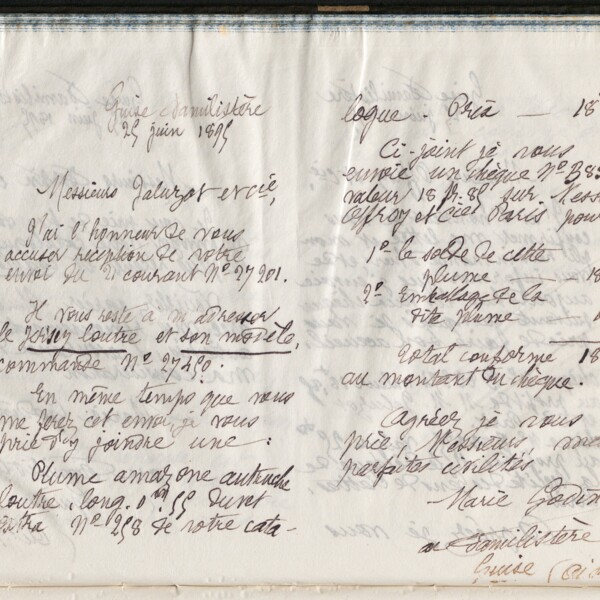 Guise Familistère
25 juin 1895
Messieurs Jaluzot et Cie,
J'ai l'honneur de vous
accuser réception de votre
envoi du 21 courant N° 27201.
Il vous reste à m'adresser
le Jersey loutre et son modèle,
commande N° 27450.
En même temps que vous
me ferez cet envoi, je vous
prie d'y joindre une :
Plume amazone autruche
loutre, long. 0m,55 duvet
extra N° 258 de votre cata-
logue. Prix — 18
Ci-joint je vous
envoie un chèque N° B85
valeur 18 fr. 85 sur Mess
Offroy et Cie Paris pour
1° le solde de cette
plume — 18
2° Emballage de la
dite plume —
Total conforme 18
au montant du chèque.
Agréez je vous
prie, Messieurs, me
parfaites civilités
Marie Godin
au Familistère
Guise (Ai